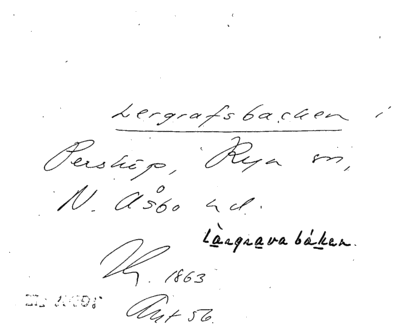 Lergrafsbacken i
Perstorp, Rya sn,
N. Åsbo hd.
Làrgrava báken.
1863
Ant 56.